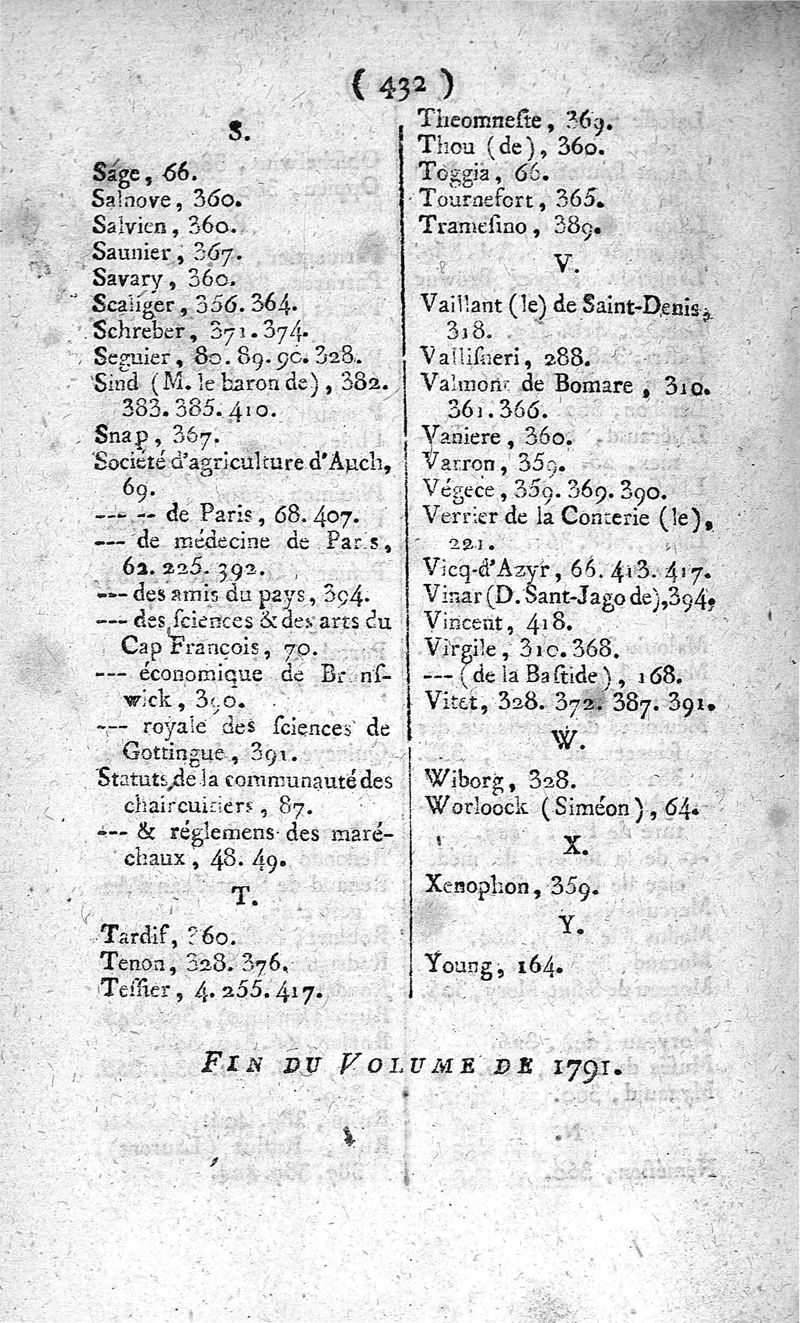 ( 432 )
S.
Sage, 66.
Salnove, 360.
Salvien, 360.
Saunier, 367.
Savary, 360.
Scaliger, 356. 364.
Schreber, 371. 374.
Seguier, 80. 89. 90. 328.
Sind (M. le baron de), 382.
383. 385. 410.
Snap, 367.
Société d'agriculture d'Auch,
69.
--- -- de Paris, 68. 407.
--- de médecine de Paris,
62. 225. 392.
--- des amis du pays, 394.
--- des ſciences & des arts du
Cap François, 70.
--- économique de Brunſ-
wick, 390.
--- royale des ſciences de
Gottingue, 391.
Statuts de la communauté des
chaircuitiers, 87.
--- & réglemens des maré-
chaux, 48. 49.
T.
Tardif, 360.
Tenon, 328. 376.
Teſſier, 4. 255. 417.
Theomneſte, 369.
Thou (de), 360.
Toggia, 66.
Tournefort, 365.
Trameſino, 389.
V.
Vaillant (le) de Saint-Denis,
318.
Valliſneri, 288.
Valmont de Bomare, 310.
361. 366.
Vaniere, 360.
Varron, 359.
Végece, 359. 369. 390.
Verrier de la Conterie (le),
221.
Vicq-d'Azyr, 66. 413. 417.
Vinar (D. Sant-Jago de), 394.
Vincent, 418.
Virgile, 310. 368.
--- (de la Baſtide), 168.
Vitet, 328. 372. 387. 391.
W.
Wiborg, 328.
Worloock (Siméon), 64.
X.
Xenophon, 359.
Y.
Young, 164.
FIN DU VOLUME DE 1791.